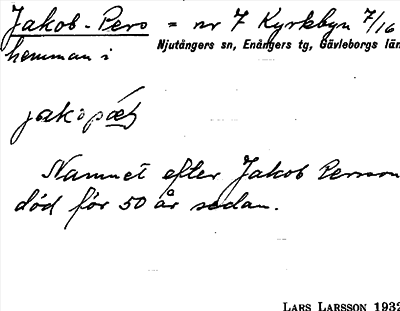 Jakob-Pers = nr 7 Kyrkbyn 7/16
hemman i Njutångers sn, Enångers tg, Gävleborgs län
Namnet efter Jakob Persson
död för 50 år sedan.
LARS LARSSON 1932